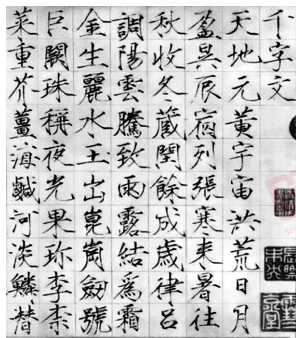 千字文
天地元黃宇宙洪荒日月
盈昃辰宿列張寒来暑往
秋收冬藏閏餘成歲律呂
調陽雲騰致雨露結爲霜
金生麗水玉出崑崗劒號
巨闕珠稱夜光果珎李柰
菜重芥薑海鹹河淡鱗潛